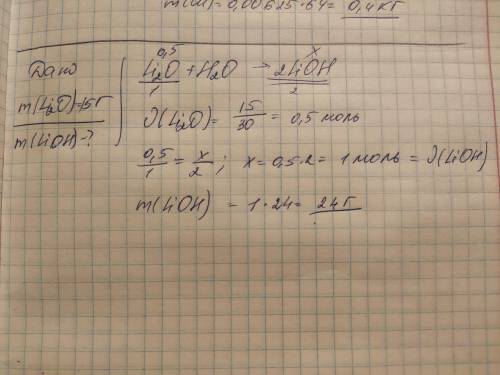 m(Cu) = 0,00625·64 = 0,4 кг
Дано
m(Li₂O)=15г
m(LiOH)-?
0,5 x
Li₂O + H₂O → 2LiOH
1 2
ν(Li₂O) = 15/30 = 0,5 моль
0,5/1 = x/2 ; x = 0,5·2 = 1 моль = ν(LiOH)
m(LiOH) = 1·24 = 24г